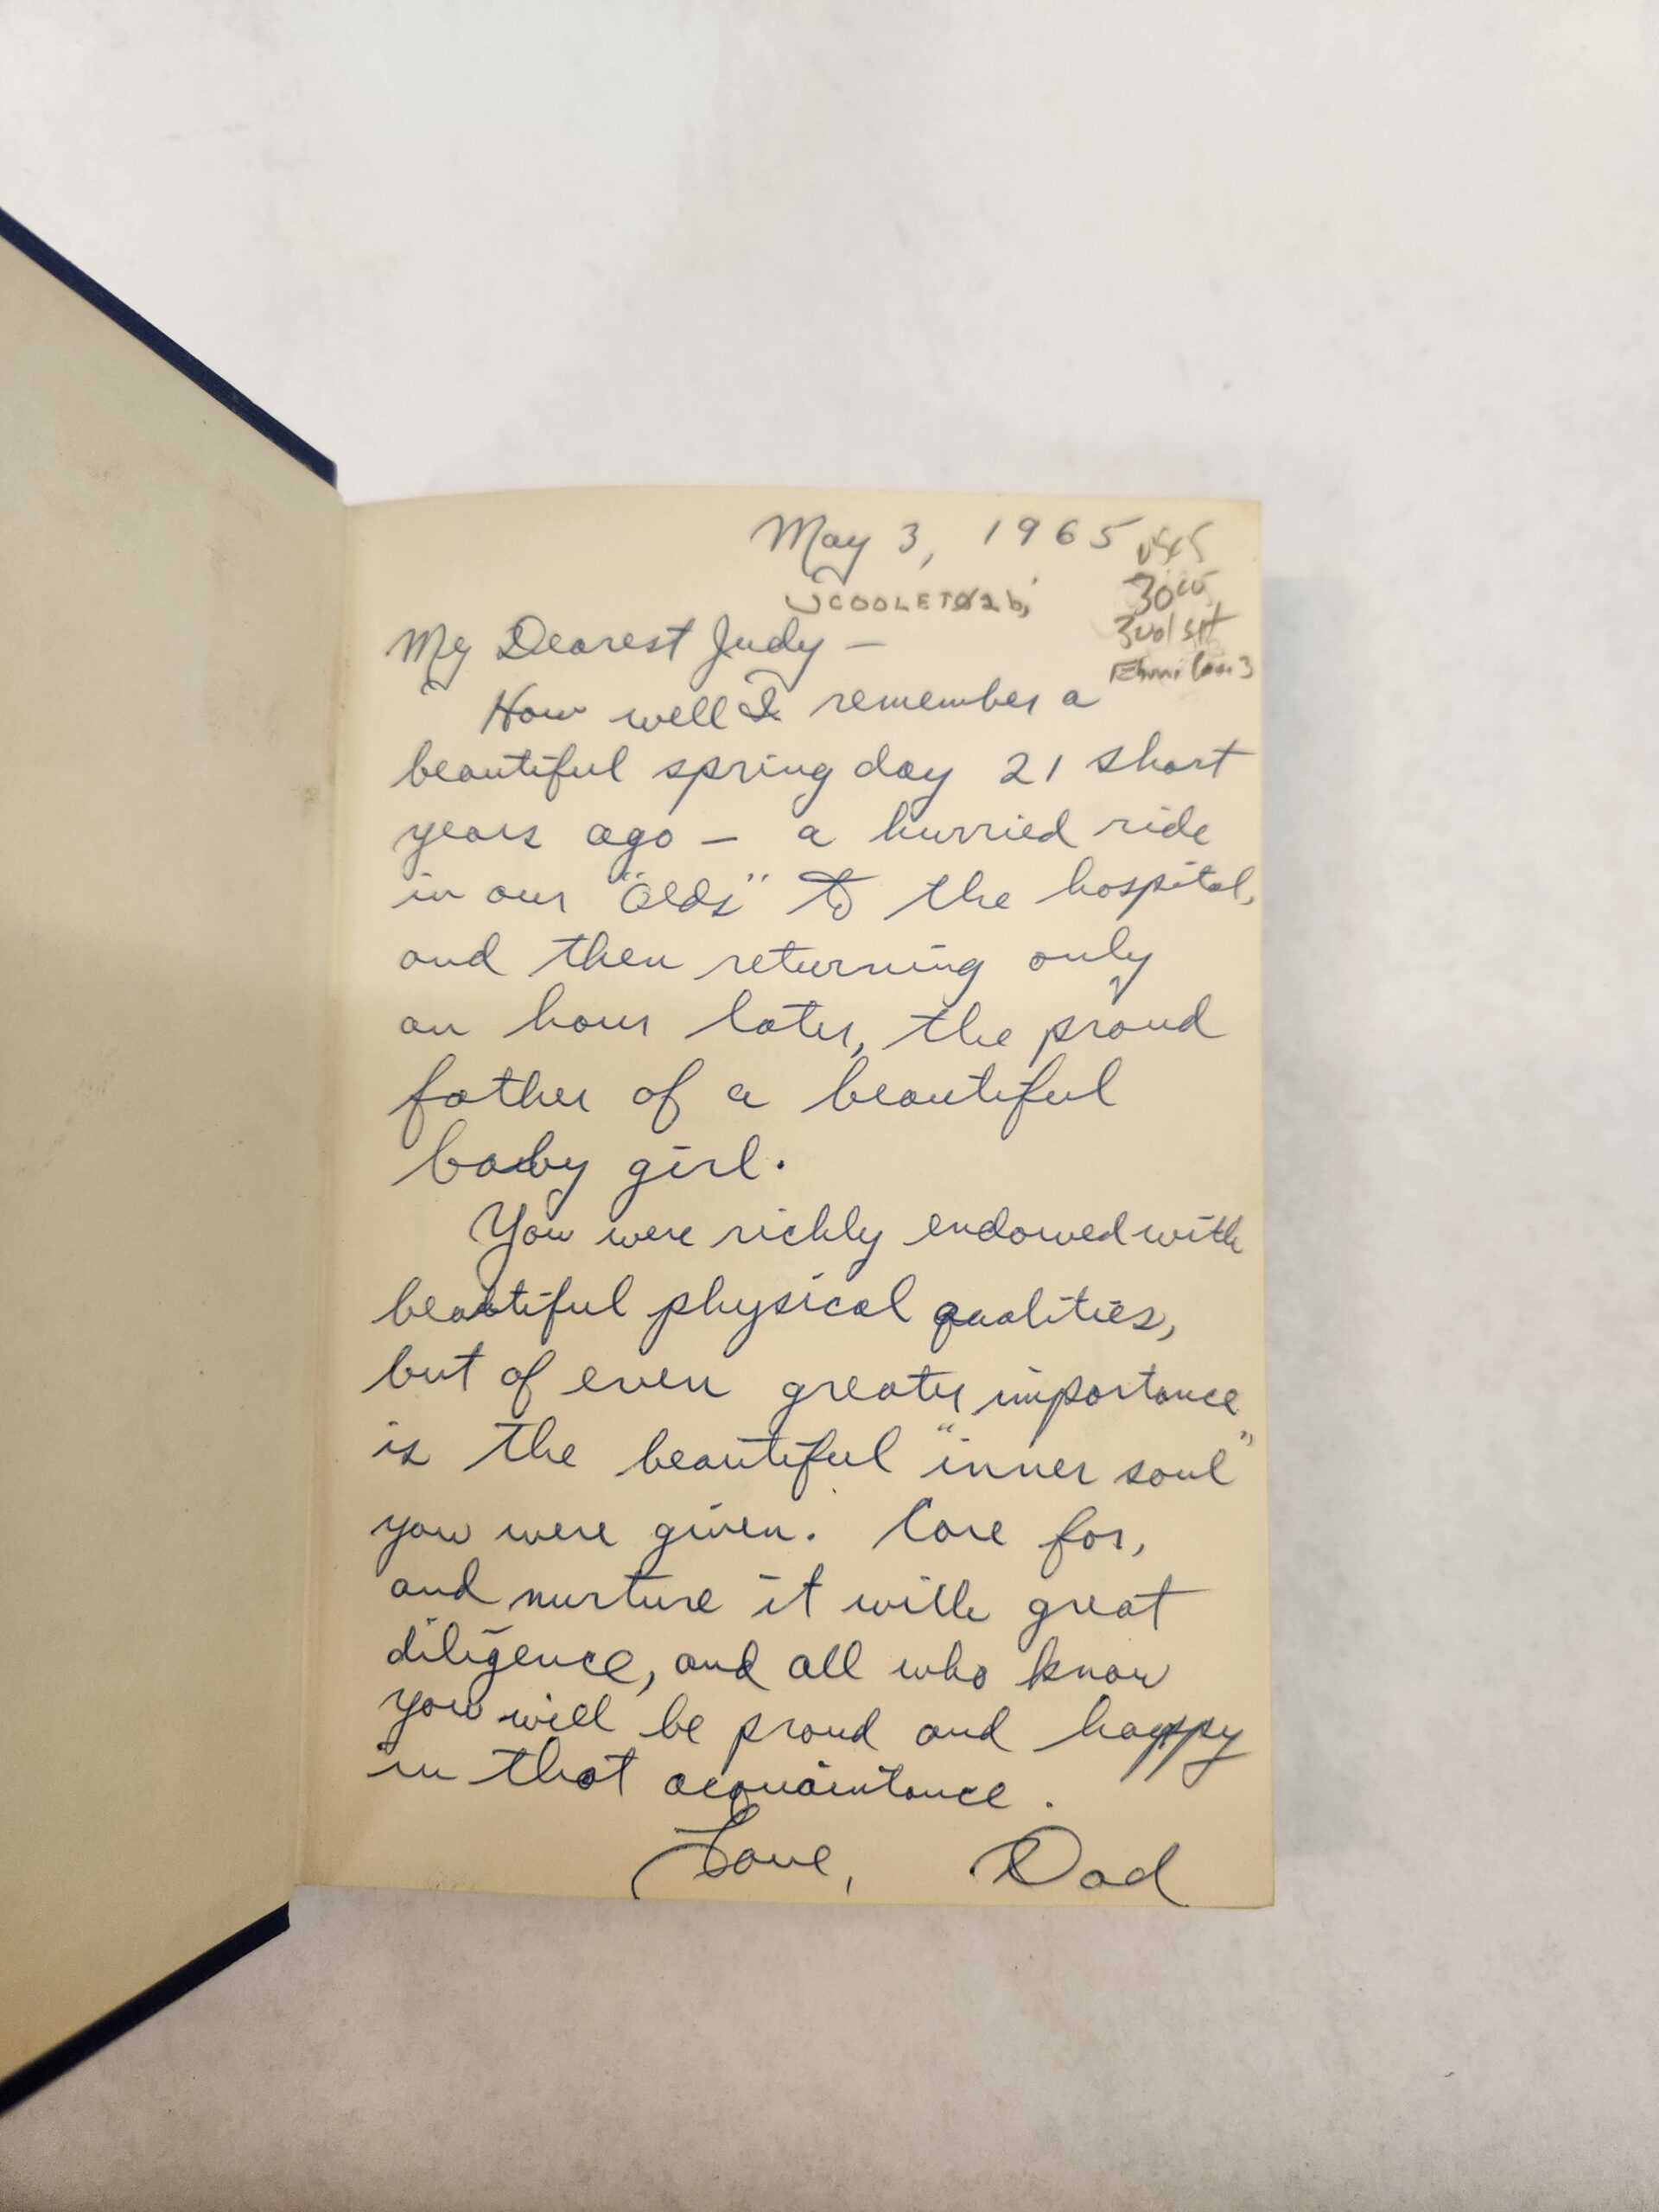 May 3, 1965
30.00
3 vol set
My Dearest Judy —
How well I remember a
beautiful spring day 21 short
years ago — a hurried ride
in our "Olds" to the hospital,
and then returning only
an hour later, the proud
father of a beautiful
baby girl.
You were richly endowed with
beautiful physical qualities,
but of even greater importance
is the beautiful "inner soul"
you were given. Care for,
and nurture it with great
diligence, and all who know
you will be proud and happy
in that acquaintance.
Love, Dad